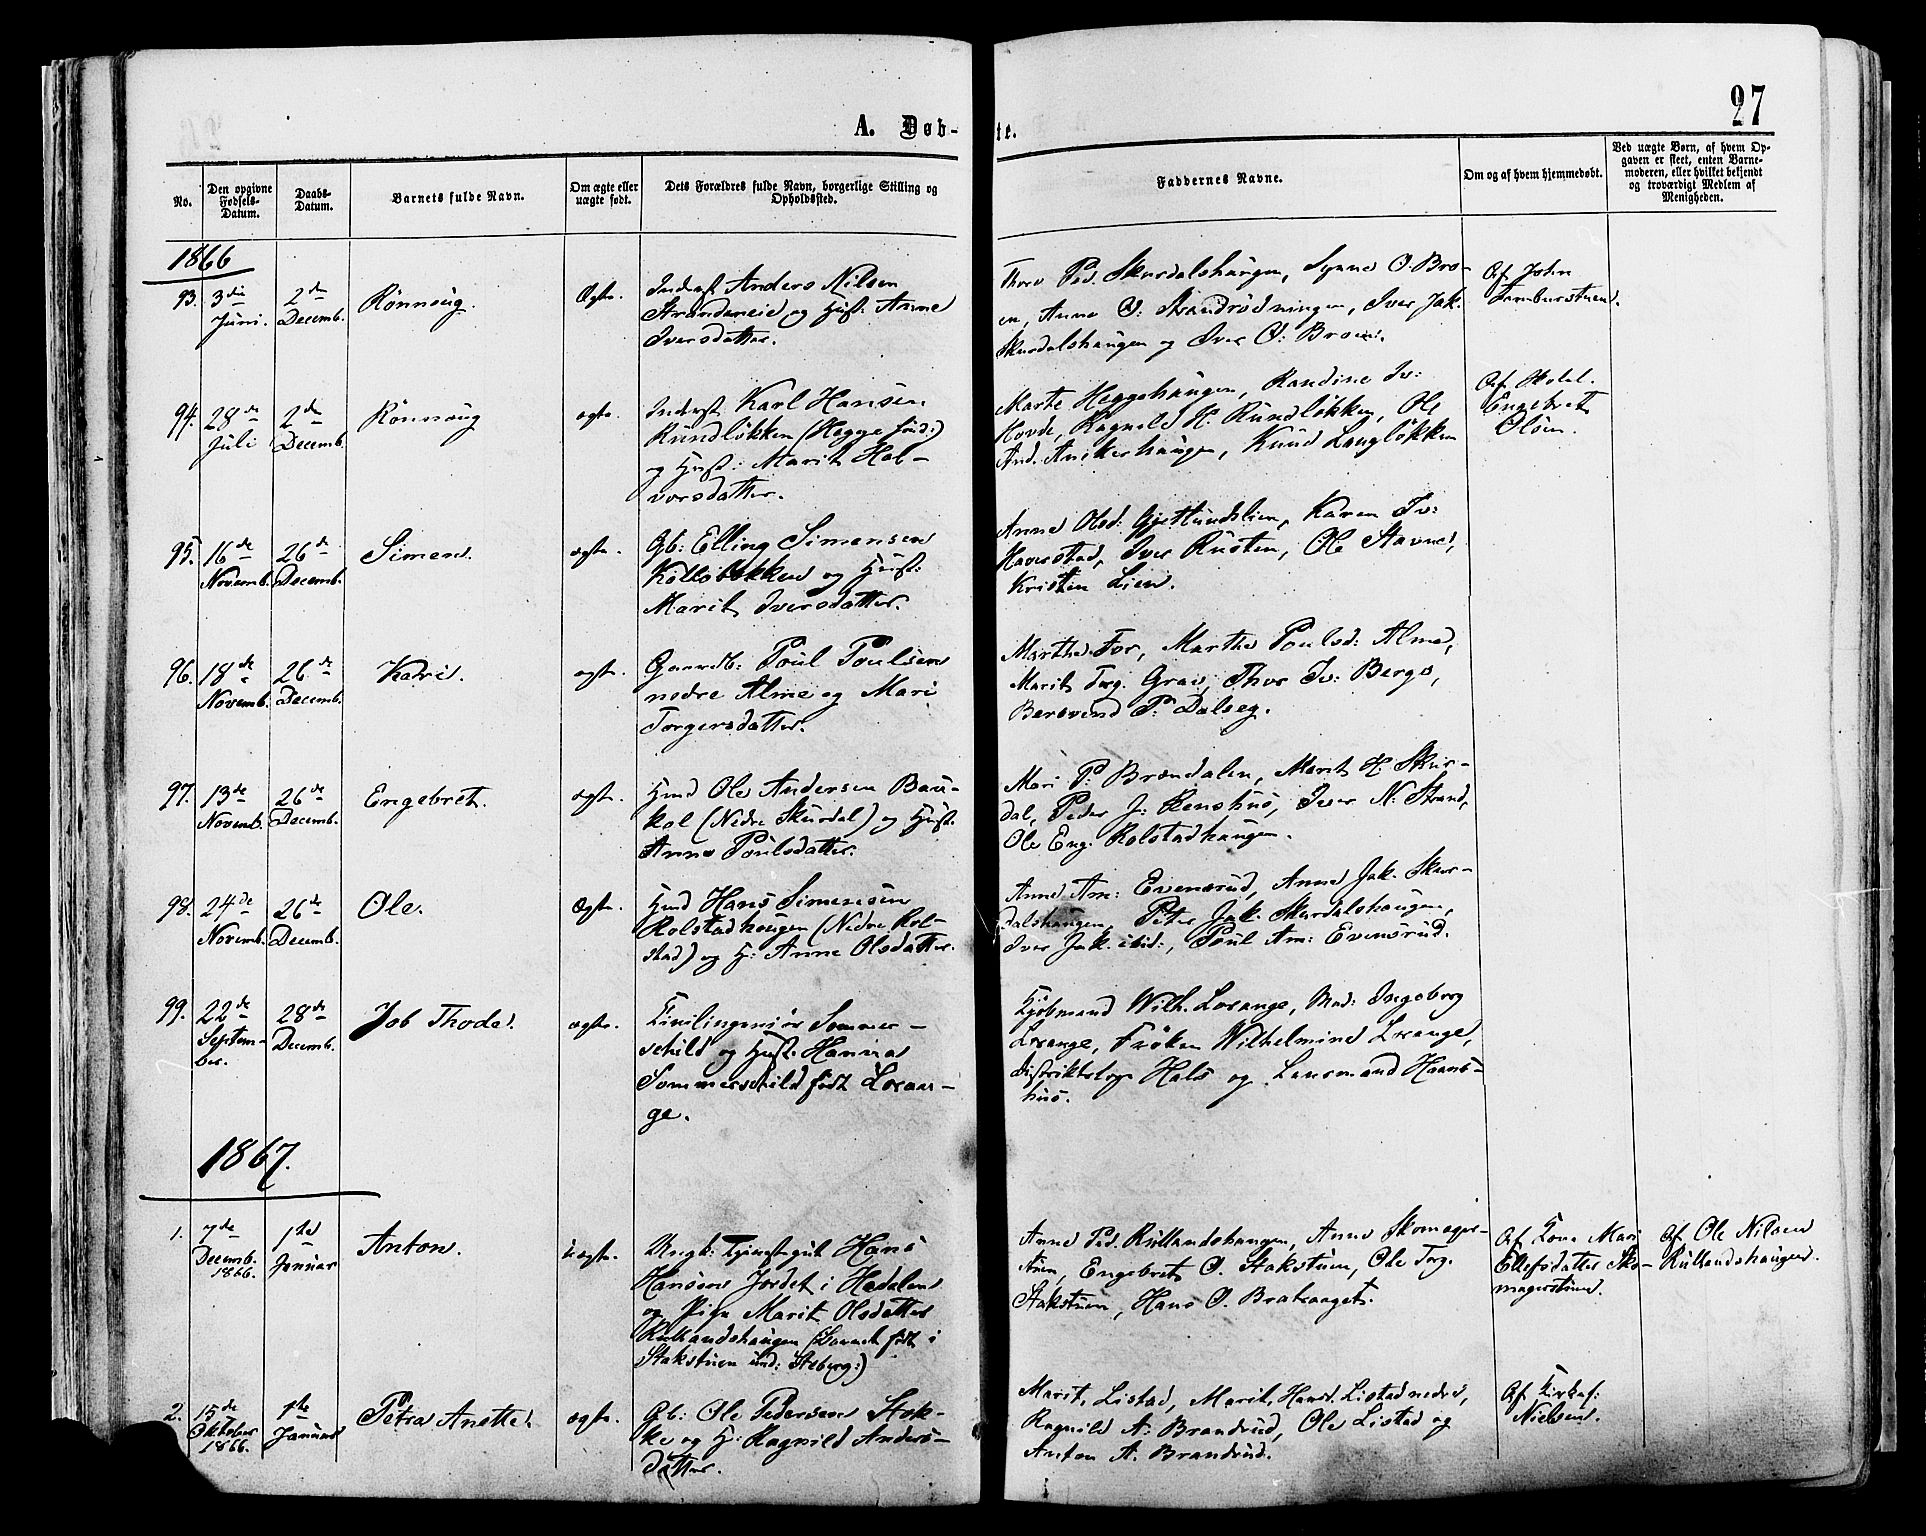 27
A. Døb-
te.
No.
Den opgivne Fødsels-Datum.
Daabs-Datum.
Barnets fulde Navn.
Om ægte eller uægte født.
Dets Forældres fulde Navn, borgerlige Stilling og Opholdssted.
Faddernes Navne.
Om og af hvem hjemmedøbt.
Ved uægte Børn, af hvem Op-
gaven er skeet, enten Barne-
moderen, eller hvilket bekjendt
og troværdigt Medlem af
Menigheden.
1866
93. 3die Juni. 2den Decemb. Rønnoug. Ægte.
Inderst Anders Nilsen
Strandeneie og Hust: Anne
Iversdatter.
Thore Ped. Skurdalshaugen, Synne O. Bro-
en, Anne O: Strandrødningen, Iver Jak.
Skurdalshaugen og Iver O: Broen.
Af John
94. 28de Juli 2den Decemb. Rønnoug ægte.
Inderst Karl Hansen
Rundløkken (Hegge
og Hust: Marit Hal-
vorsdatter.
Marte Heggehaugen, Randine Iv:
Hovde, Ragnild H. Rundløkken, Ole
And. Knud Langløkken
Af
Engebret
Olsen.
95. 16de Novemb. 26de Decemb. Simen. ægte.
Gb: Elling Simensen
og Hust:
Marit Iversdatter.
Anne Olsd: Gjetlundslien, Karen Iv:
Haverstad, Iver Rusten, Ole Stavne,
Kristen Lien.
96. 18de Novemb. 26de Decemb. Kari. ægte.
Gaardb: Poul Poulsen
nedre Alme og Mari
Torgersdatter.
Marthe For, Marthe Poulsd: Alme,
Marit Torg. Grav, Thor Iv: Berge,
Bersvend P: Dalseg.
97. 13de Novemb. 26de Decemb. Engebret. ægte.
Hmd Ole Andersen Bau-
kol (Nedre Skurdal) og Hust.
Anne Poulsdatter.
Mari P: Brændalen, Marit H. Skur-
dal, Peder J: Iver N: Strand,
Ole Eng: Rolstadhaugen.
98. 24de Novemb. 26de Decemb. Ole. Ægte.
Hmd Hans Simensen
Rolstadhaugen (Nedre Rol-
stad) og H: Anne Olsdatter.
Anne Am: Evensrud, Anne Jak. Skur-
dalshaugen, Peter Jak: Skurdalshaugen,
Iver Jak. ibid:, Poul Am: Evensrud.
99. 22de Septem-
ber. 28de Decemb. Job Thode. ægte.
Civilingeniør Sommer-
schild og Hust: Hanna
Sommerschild født Loran-
ge.
Kjøbmand Wilh. Lorange, Mad: Ingeborg
Lorange, Frøken Wilhelmine Lorange,
Distriktslæge Hals og Lensmand
1867.
1. 7de Decemb. 1866. 1ste Januar Anton. uægte.
Ungk: Tjenestegut Hans
Hansen Jordet i Hedalen
og Pige Marit Olsdatter
Rullandshaugen (Barnet født i
Stakstuen und: Steberg:)
Anne Ped. Rullandshaugen, Anne Skomager-
stuen, Engebret O. Stakstuen, Ole Torg.
Stakstuen, Hans O.
Af Kone Mari
Ellefsdatter Sko-
magerstuen.
Af Ole Nilsen
Rullandshaugen.
2. 15de Oktober 1866. 1ste Januar Petra Anette. ægte.
Gb: Ole Pedersen Stok-
ke og H: Ragnild Anders-
datter.
Marit Listad, Marit Hansd. Listad nedre,
Ragnild A: Brandrud, Ole Listad og
Anton A. Brandrud.
Af
Nielsen.